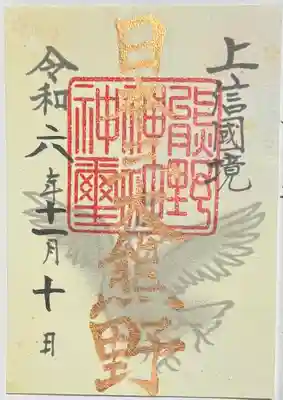 上信國境
日本三大熊野
熊野
神社
神璽
令和六年十一月十日